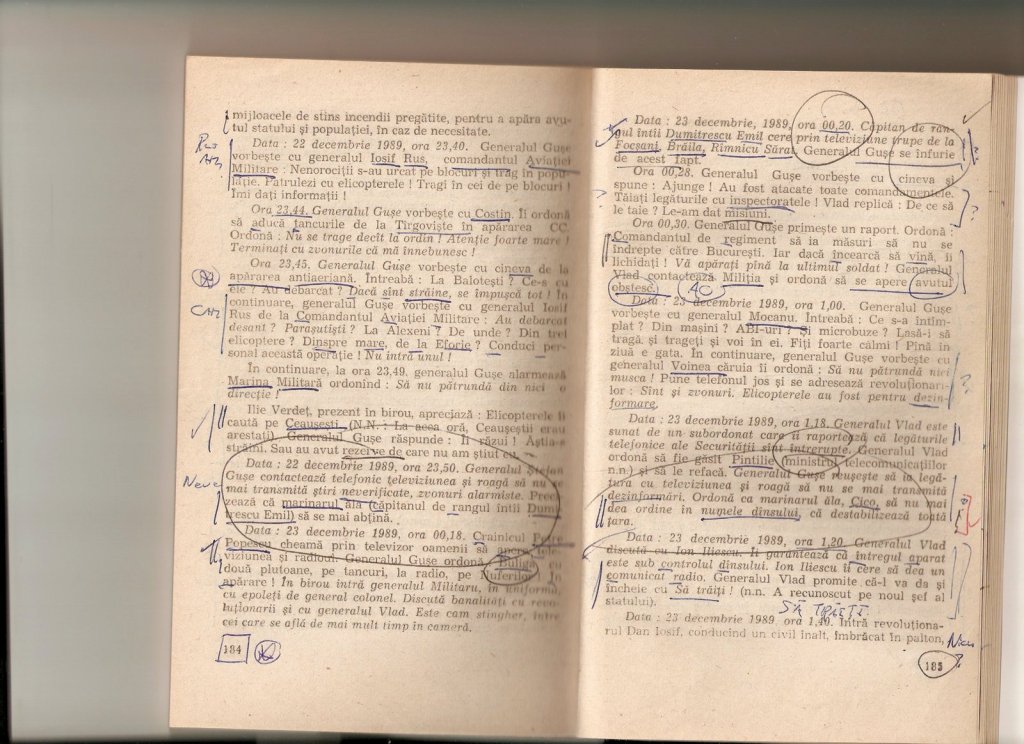 mijloacele de stins incendii pregătite, pentru a apăra avu-
tul statului și populației, în caz de necesitate.
Data : 22 decembrie 1989, ora 23,40. Generalul Gușe
vorbește cu generalul Iosif Rus, comandantul Aviației
Militare : Nenorociții s-au urcat pe blocuri și trag în popu-
lație. Patrulezi cu elicopterele ! Tragi în cei de pe blocuri !
Îmi dați informații !
Ora 23,44. Generalul Gușe vorbește cu Costin. Îi ordonă
să aducă tancurile de la Tirgoviște în apărarea CC.
Ordonă : Nu se trage decît la ordin ! Atenție foarte mare !
Terminați cu zvonurile că mă înnebunesc !
Ora 23,45. Generalul Gușe vorbește cu cineva de la
apărarea antiaeriană. Întreabă : La Balotești ? Ce-s cu
ele ? Au debarcat ? Dacă sînt străine, se împușcă tot ! În
continuare, generalul Gușe vorbește cu generalul Iosif
Rus de la Comandantul Aviației Militare : Au debarcat
desant ? Parașutiști ? La Alexeni ? De unde ? Din trei
elicoptere ? Dinspre mare, de la Eforie ? Conduci per-
sonal această operație ! Nu intră unul !
În continuare, la ora 23,49. generalul Gușe alarmează
Marina Militară ordonînd : Să nu pătrundă din nici o
direcție !
Ilie Verdeț, prezent în birou, apreciază : Elicopterele îi
caută pe Ceaușești (N.N. : La acea oră, Ceaușeștii erau
arestați). Generalul Gușe răspunde : Îi răzui ! Aștia-s
străini. Sau au avut rezerve de care nu am știut eu.
Data : 22 decembrie 1989, ora 23,50. Generalul Ștefan
Gușe contactează telefonic televiziunea și roagă să nu se
mai transmită știri neverificate, zvonuri alarmiste. Preci-
zează că marinarul ăla (căpitanul de rangul întîi Dumi-
trescu Emil) să se mai abțină.
Data : 23 decembrie 1989, ora 00,18. Crainicul Petre
Popescu cheamă prin televizor oamenii să apere tele-
viziunea și radioul. Generalul Gușe ordonă : Buligă cu
două plutoane, pe tancuri, la radio, pe luferilor. În
apărare ! În birou intră generalul Militaru, în uniformă,
cu epoleți de general colonel. Discută banalități cu revo-
luționarii și cu generalul Vlad. Este cam stingher, între
cei care se află de mai mult timp în cameră.
184
Data : 23 decembrie, 1989, ora 00,20. Căpitan de ran-
gul întîi Dumitrescu Emil cere prin televiziune trupe de la
Focșani, Brăila, Rimnicu Sărat. Generalul Gușe se înfurie
de acest fapt.
Ora 00,28. Generalul Gușe vorbește cu cineva și
spune : Ajunge ! Au fost atacate toate comandamentele.
Tăiați legăturile cu inspectoratele ! Vlad replică : De ce să
le taie ? Le-am dat misiuni.
Ora 00,30. Generalul Gușe primește un raport. Ordonă :
Comandantul de regiment să ia măsuri să nu se
îndrepte către București. Iar dacă încearcă să vină, îi
lichidați ! Vă apărați pînă la ultimul soldat ! Generalul
Vlad contactează Miliția și ordonă să se apere avutul
obștesc. 40
Data : 23 decembrie 1989, ora 1,00. Generalul Gușe
vorbește cu generalul Mocanu. Întreabă : Ce s-a întîm-
plat ? Din mașini ? ABI-uri ? Și microbuze ? Lasă-i să
tragă, și trageți și voi în ei. Fiți foarte calmi ! Pînă în
ziuă e gata. În continuare, generalul Gușe vorbește cu
generalul Voinea căruia îi ordonă : Să nu pătrundă nici
musca ! Pune telefonul jos și se adresează revoluționari-
lor : Sînt și zvonuri. Elicopterele au fost pentru dezin-
formare.
Data : 23 decembrie 1989, ora 1,18. Generalul Vlad este
sunat de un subordonat care îi raportează că legăturile
telefonice ale Securității sînt întrerupte. Generalul Vlad
ordonă să fie găsit Pintilie (ministrul telecomunicațiilor
n.n.) și să le refacă. Generalul Gușe reușește să ia legă-
tura cu televiziunea și roagă să nu se mai transmită
dezinformări. Ordonă ca marinarul ăla, Cico, să nu mai
dea ordine în numele dînsului, că destabilizează toată
țara.
Data : 23 decembrie 1989, ora 1,20. Generalul Vlad
discută cu Ion Iliescu. Îi garantează că întregul aparat
este sub controlul dînsului. Ion Iliescu îi cere să dea un
comunicat radio. Generalul Vlad promite că-l va da și
încheie cu Să trăiți ! (n.n. A recunoscut pe noul șef al
statului).
SĂ TRĂIȚI
Data : 23 decembrie 1989 ora 1,40. Intră revoluționa-
rul Dan Iosif, conducînd un civil înalt, îmbrăcat în palton,
185